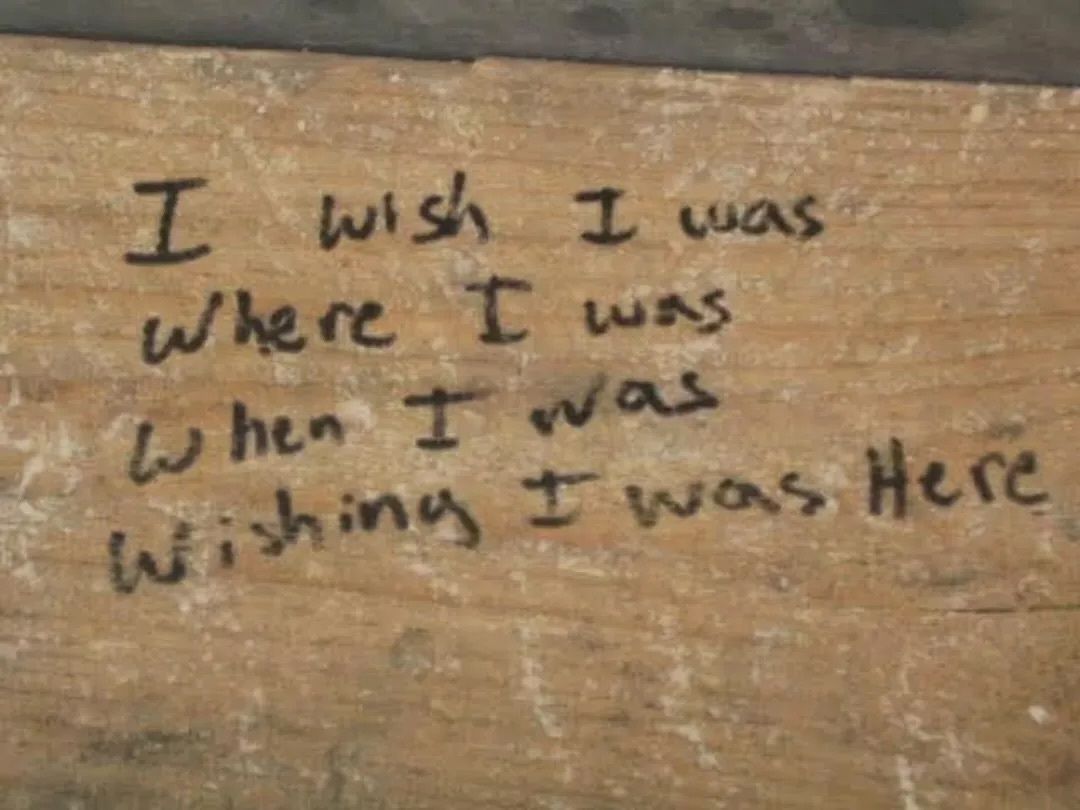 I wish I was
where I was
when I was
wishing I was Here